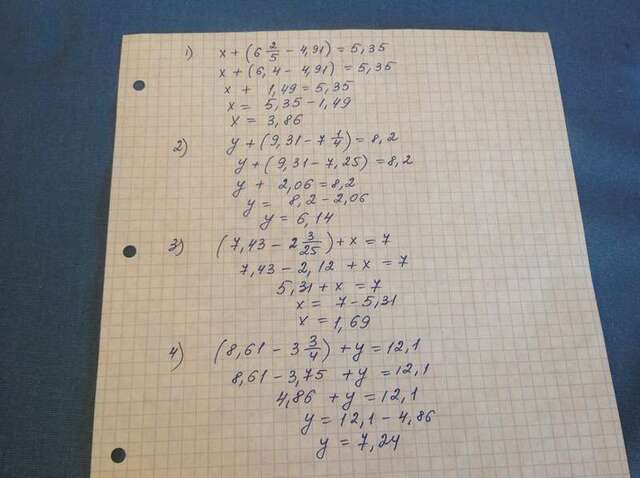 1) x + (6 2/5 - 4,91) = 5,35
x + (6,4 - 4,91) = 5,35
x + 1,49 = 5,35
x = 5,35 - 1,49
x = 3,86
2) y + (9,31 - 7 1/4) = 8,2
y + (9,31 - 7,25) = 8,2
y + 2,06 = 8,2
y = 8,2 - 2,06
y = 6,14
3) (7,43 - 2 3/25) + x = 7
7,43 - 2,12 + x = 7
5,31 + x = 7
x = 7 - 5,31
x = 1,69
4) (8,61 - 3 3/4) + y = 12,1
8,61 - 3,75 + y = 12,1
4,86 + y = 12,1
y = 12,1 - 4,86
y = 7,24